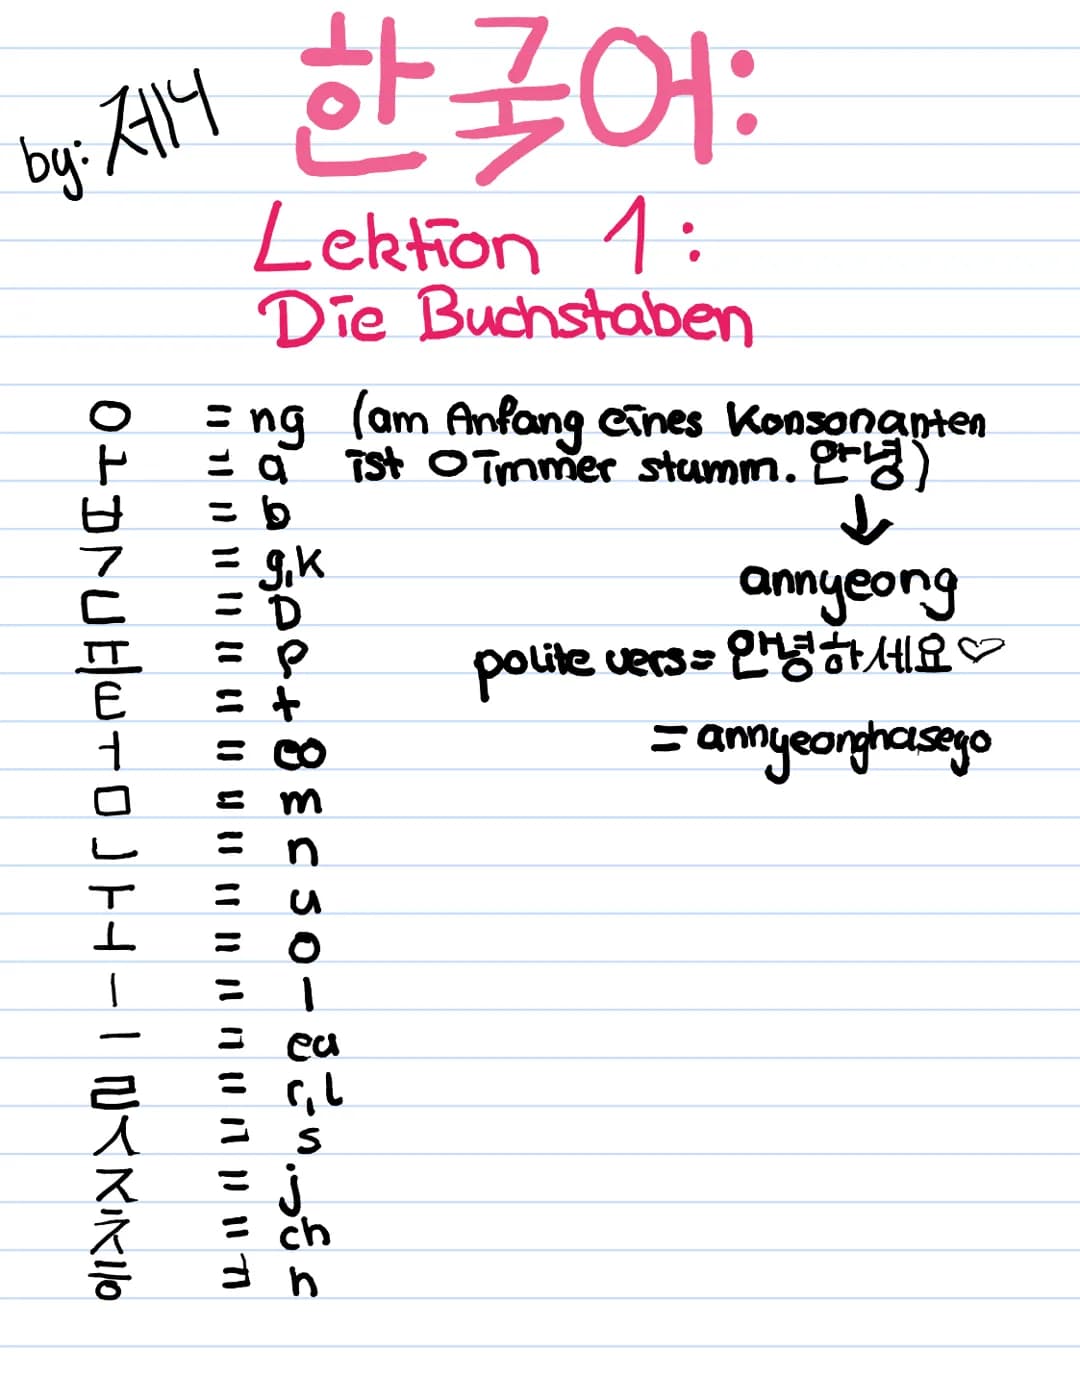 한국어:
by: 제니
Lektion 1:
Die Buchstaben
ㅇ = ng (am Anfang eines Konsonanten
ㅏ = a ist ㅇ immer stumm. 안녕)
ㅂ = b ↓
ㄱ = g,k annyeong
ㄷ = D
ㅍ = p polite vers = 안녕하세요♡
ㅌ = t
ㅓ = eo = annyeonghaseyo
ㅁ = m
ㄴ = n
ㅜ = u
ㅗ = o
ㅣ = I
ㅡ = eu
ㄹ = r,l
ㅅ = s
ㅈ = j
ㅊ = ch
ㅎ = h